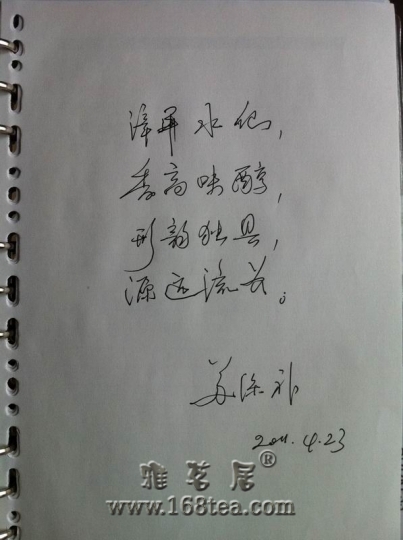 漳平水仙,
香高味醇,
形韵独具,
源远流长。
2011.4.23
雅茗居®
www.168tea.com